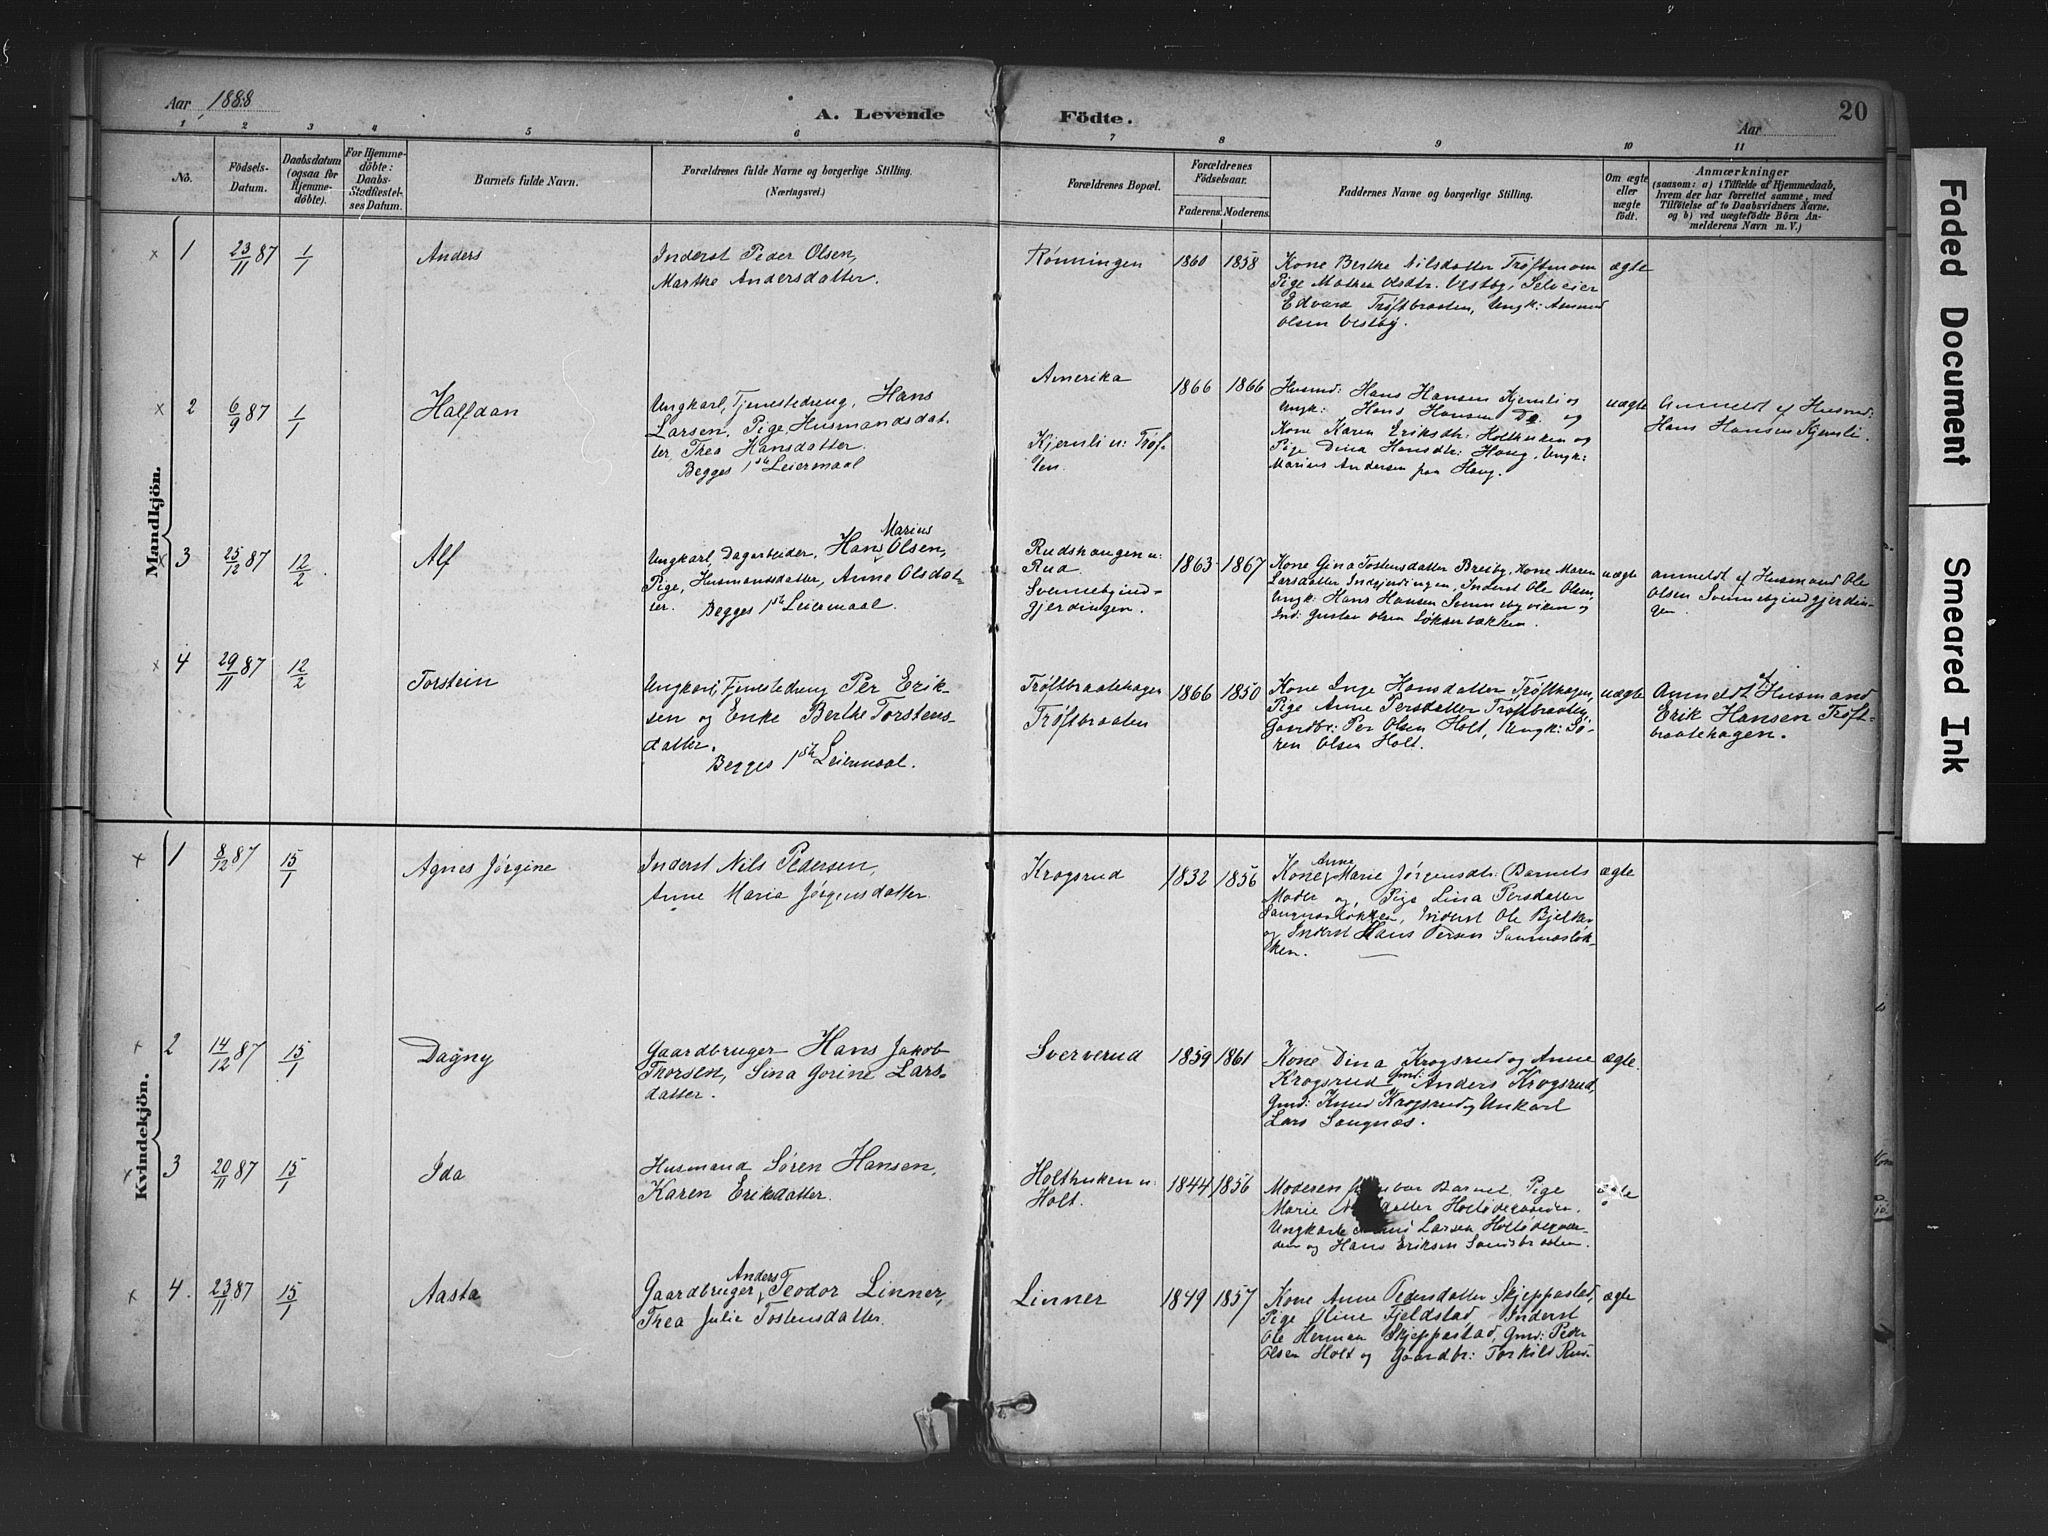 Aar 1888
A. Levende Födte.
Aar
20
1 2 3 4 5 6 7 8 9 10 11
No.
Födsels-
Datum.
Daabsdatum
(ogsaa for
Hjemme-
döbte).
For Hjemme-
döbte:
Daabs-
Stadfæstel-
ses Datum.
Barnets fulde Navn.
Forældrenes fulde Navne og borgerlige Stilling.
(Næringsvei.)
Forældrenes Bopæl.
Forældrenes
Födselsaar.
Faderens. Moderens.
Faddernes Navne og borgerlige Stilling.
Om ægte
eller
uægte
födt.
Anmærkninger
(saasom: a) i Tilfælde af Hjemmedaab,
hvem der har forrettet samme, med
Tilföielse af to Daabsvidners Navne,
og b) ved uægtefödte Börn An-
melderens Navn m. V.)
Mandkjön.
× 1 23/11 87 1/1 Anders
Inderst Peder Olsen,
Marthe Andersdatter.
Rönningen
1860 1858
Kone Berthe Nilsdatter Tröftmoen
Pige Mathea Olsdtr. Vestby,
Edvard Tröftbraaten, Ungk: Amund
Olsen Vestby.
ægte
× 2 6/9 87 1/1 Halfdan
Ungkarl, Tjenestedreng, Hans
Larsen, Pige, Husmandsdat-
ter Thea Hansdatter.
Begges 1ste Leiermaal
Amerika
Kjernli u: Tröf-
ten.
1866 1866
Husmd: Hans Hansen Kjernli og
Ungk: Hans Hansen Do og
Kone Karen Eriksdtr: Holthuken og
Pige Dina Hansdtr: Haug, Ungk:
Marius Andersen paa Haug.
uægte
Anmeldt af Husmd:
Hans Hansen Kjernli.
× 3 25/12 87 12/2 Alf
Marius
Ungkarl, Dagarbeider, Hans Olsen,
Pige, Husmandsdatter, Anne Olsdat-
ter. Begges 1ste Leiermaal.
Rudshaugen u:
Rud.
Svennebyind-
gjerdingen.
1863 1867
Kone Gina Tostensdatter Breiby, Kone Maren
Larsdatter Indgjerdingen, Inderst Ole Olsen,
Ungk: Hans Hansen Svennebyviken og
Ind: Gustav Olsen Løkkerbakken.
uægte
anmeldt af Husmand Ole
Olsen Svennebyindgjerdin-
gen
× 4 29/11 87 12/2 Torstein
Ungkarl, Tjenestedreng Per Erik-
sen og Enke Berthe Torstens-
datter.
Begges 1ste Leiermaal.
Tröftbraatehagen
Tröftbraaten
1866 1850
Kone Inge Hansdatter Tröfthagen,
Pige Anne Persdatter Tröftbraaten,
Gaardbr: Per Olsen Holt, Ungk: Sö-
ren Olsen Holt.
uægte
Anmeldt af Husmand
Erik Hansen Tröft-
braatehagen.
Kvindekjön.
× 1 8/12 87 15/1 Agnes Jörgine
Inderst Nils Pedersen,
Anne Maria Jörgensdatter.
Krogsrud
1832 1856
Anne
Kone Marie Jörgensdtr: Barnets
Moder og, Pige Lina Persdatter
Inderst Ole
og Inderst Hans Persen Saugnæsløk-
ken.
ægte
× 2 14/12 87 15/1 Dagny
Gaardbruger Hans Jakob
Thorsen, Sina Gorine Lars-
datter.
Sververud
1859 1861
Kone Dina Krogsrud og Anne
Krogsrud Gmd: Anders Krogsrud,
Gmd: Knud Krogsrud og Unkarl
Lars Saugnæs.
ægte.
× 3 20/11 87 15/1 Ida
Husmand Sören Hansen,
Karen Eriksdatter.
Holthuken u:
Holt.
1844 1856
Moderen bar Barnet. Pige
Marie
Ungkarle Larsen
og Hans Eriksen
ægte
× 4. 23/11 87 15/1 Aasta
Anders
Gaardbruger, Teodor Linner,
Thea Julie Tostensdatter.
Linner
1849 1857
Kone Anne Pedersdatter Skjeppestad,
Pige Oline Fjeldstad, Inderst
Ole Herman Skjeppestad, Gmd: Peder
Olsen Holt og Gaardbr: Torkild Rud.
ægte
Faded Document
Smeared Ink